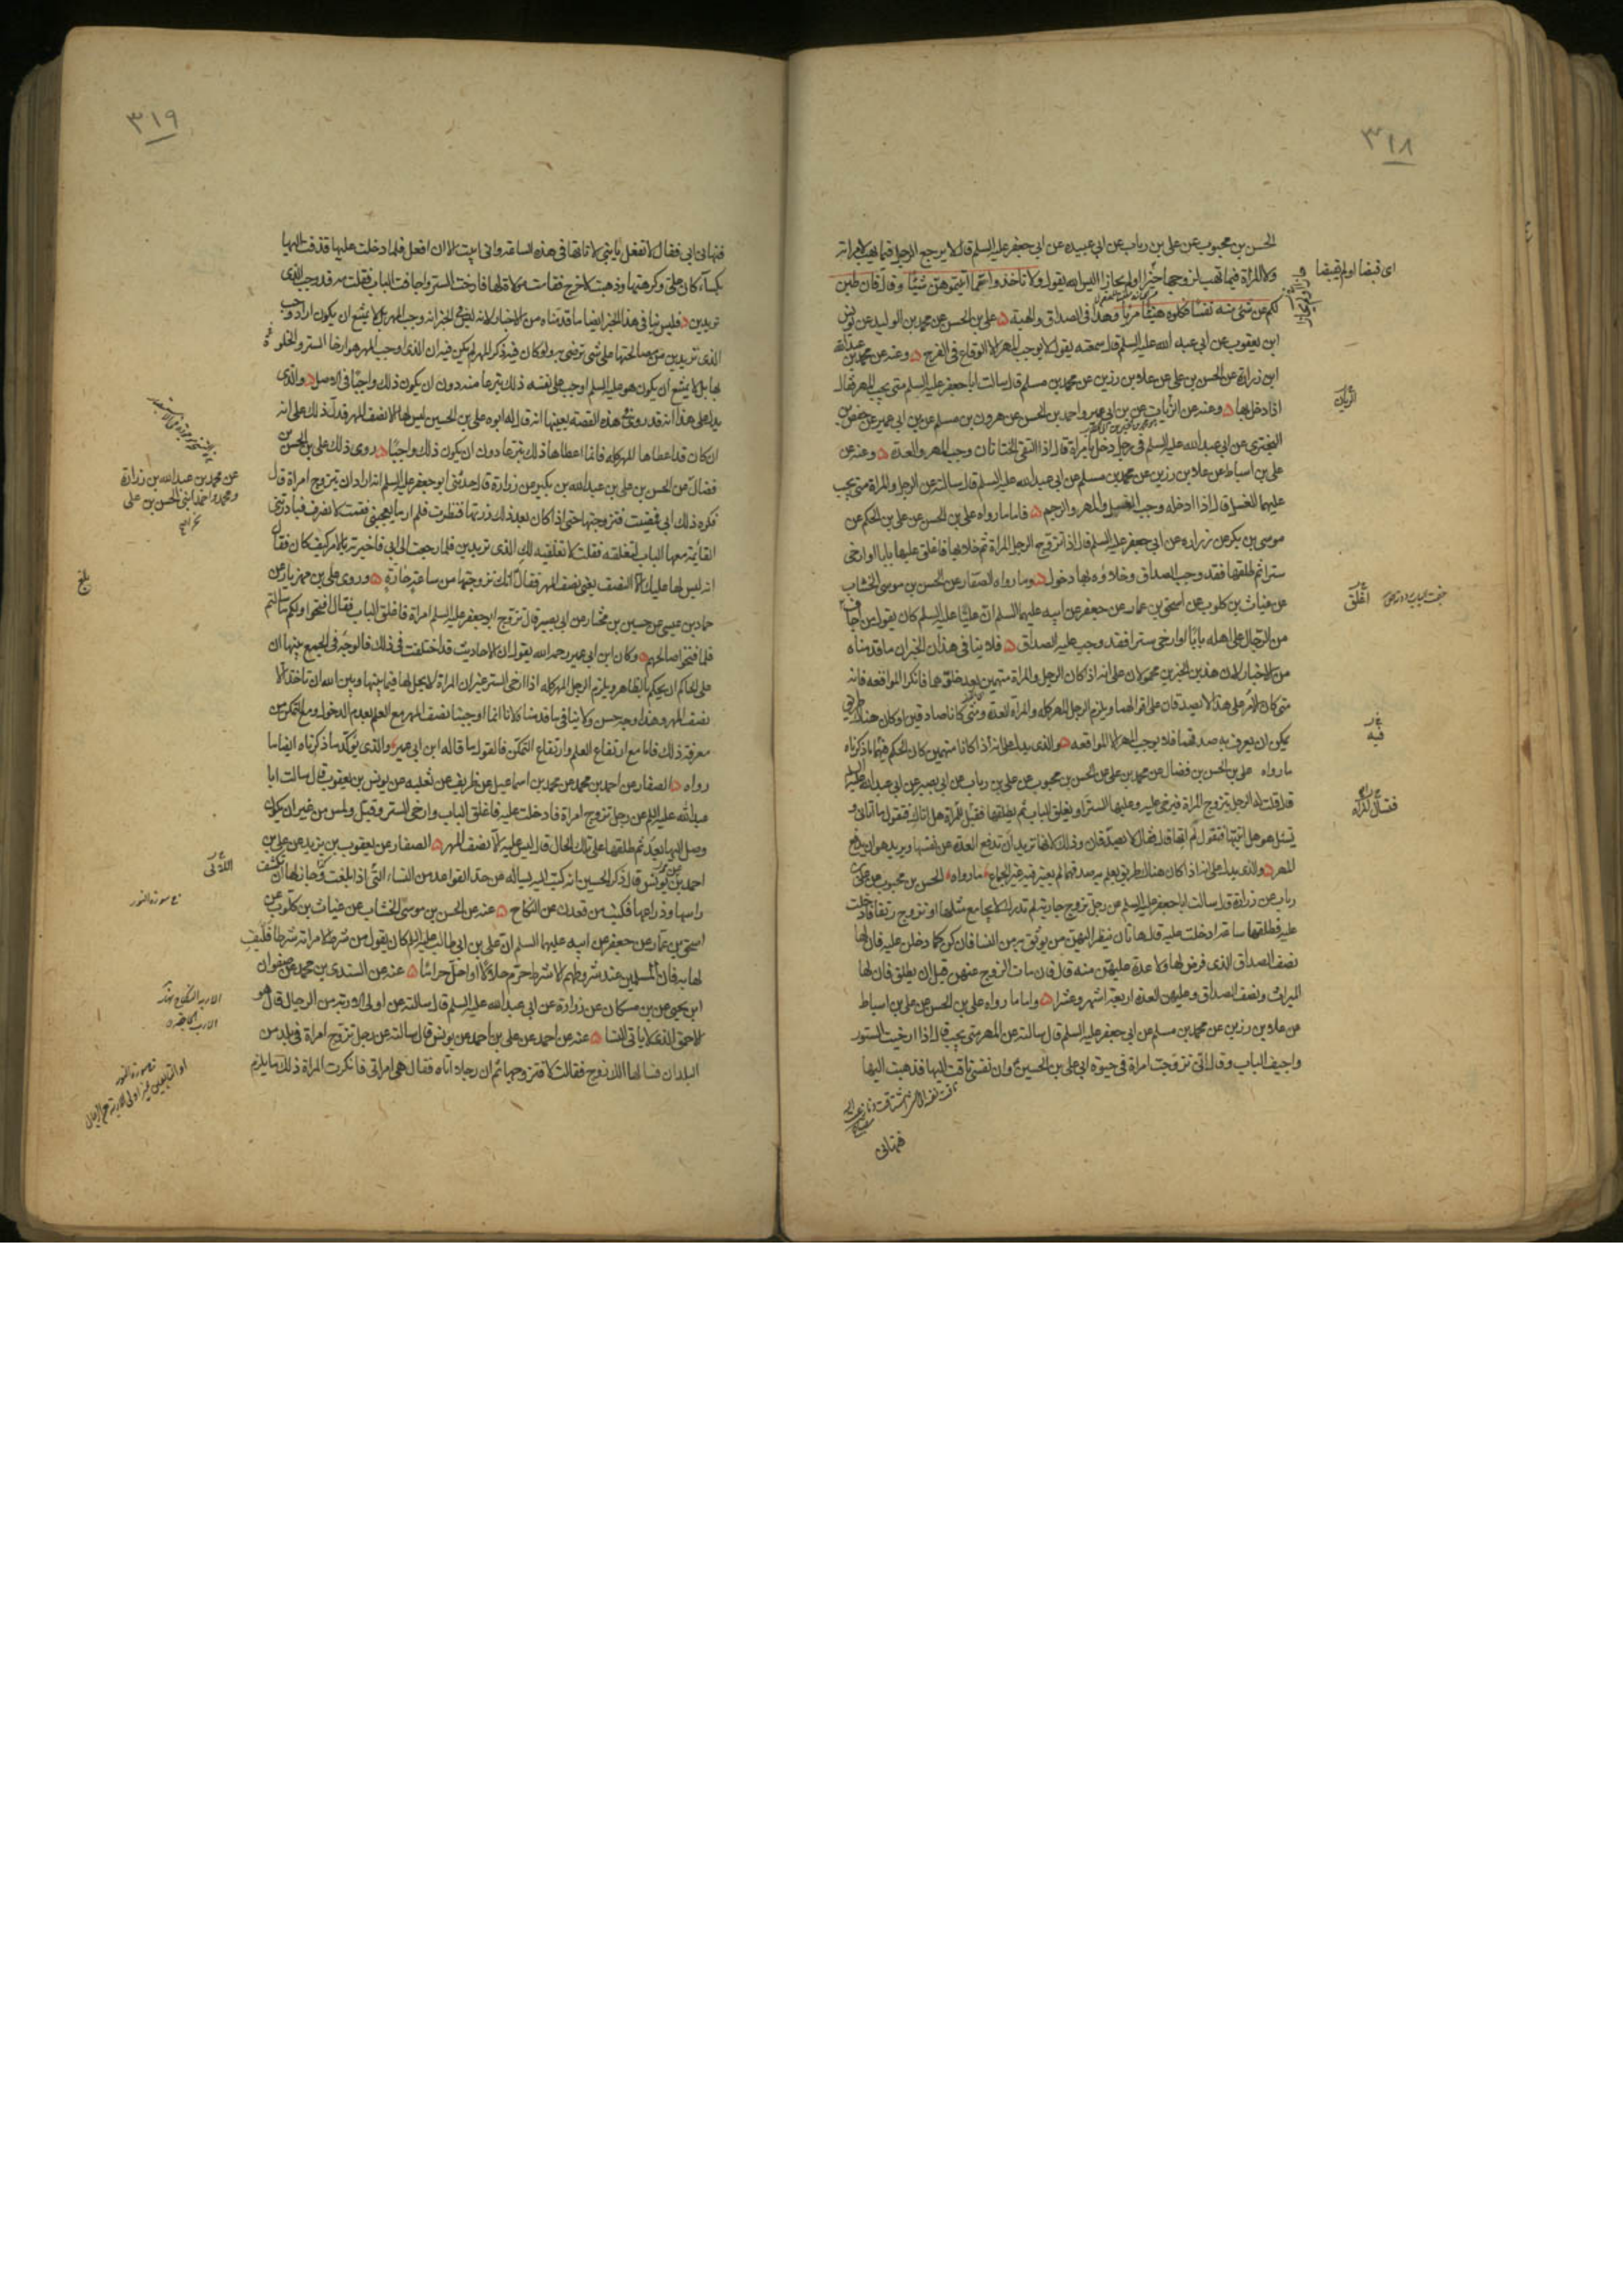 ٣١٨
الحسن بن محبوب عن علي بن رياب عن ابي عبيده عن ابي جعفر عليه السلم قال لا يرجع الرجل فيما يهب لامراته
ولا المراة فيما تهب لزوجها حيزا اولم يحاز اليس الله يقول ولا تاخذوا مما آتيتموهن شيئا وقال فان طبن
لكم عن شئ منه نفسا فكلوه هنيئا مريا وهذا في الصداق والهبة علي بن الحسن عن محمد بن الوليد عن يونس
ابن يعقوب عن ابي عبد الله عليه السلم قال سمعته يقول لا يوجب المهر الا الوقاع في الفرج وعنه عن محمد بن عبدالله
ابن زرارة عن الحسن بن علي عن علاء بن رزين عن محمد بن مسلم قال سالت ابا جعفر عليه السلم متى يجب المهر فقال
اذا دخل بها وعنه عن الزيات عن بن ابي عمير واحمد بن الحسن عن هرون بن مسلم عن بن ابي عمير عن حفص بن
البختري عن ابي عبد الله عليه السلم في رجل دخل بامراة قال اذا التقى الختانان وجب المهر والعدة وعنه عن
علي بن اسباط عن علاء بن رزين عن محمد بن مسلم عن ابي عبد الله عليه السلم قال سالته عن الرجل والمراة متى يجب
عليهما الغسل قال اذا ادخله وجب الغسل والمهر والرجم فاما ما رواه علي بن الحسن عن علي بن الحكم عن
موسى بن بكر عن زراره عن ابي جعفر عليه السلم قال اذا تزوج الرجل المراة ثم خلا بها فاغلق عليها بابا او ارخى
سترا ثم طلقها فقد وجب الصداق وخلاؤه بها دخول وما رواه الصفار عن الحسن بن موسى الخشاب
عن غياث بن كلوب عن اسحق بن عمار عن جعفر عن ابيه عليهما السلم ان عليا عليه السلم كان يقول من اجاف
من الرجال على اهله بابا او ارخى سترا فقد وجب عليه الصداق فلا ينافي هذان الخبران ما قدمناه
من الاخبار لان هذين الخبرين محمولان على انه اذا كان الرجل والمراة متهمين بعد خلوتهما فانكرا المواقعه فانه
متى كان الامر على هذا لا يصدقان على اقوالهما ويلزم الرجل المهر كله والمراه العدة ومتى كانا صادقين او كان هناك طريق
يمكن ان يعرف به صدقهما فلا يوجب المهر الا المواقعه والذي يدل على انه اذا كانا متهمين كان الحكم فيهما ما ذكرناه
ما رواه علي بن الحسن بن فضال عن محمد بن علي عن الحسن بن محبوب عن علي بن رياب عن ابي بصير عن ابي عبد الله عليه السلم
قال قلت له الرجل يتزوج المراة فيرخي عليه وعليها الستر او يغلق الباب ثم يطلقها فقيل للمراة هل اتاك فتقول ما اتاني و
يسئل هو هل اتيتها فيقول لم اتها قال فقال لا يصدقان وذلك لانها تريد ان تدفع العدة عن نفسها ويريد هو ان يدفع
المهر والذي يدل على انه اذا كان هناك طريق يعلم به صدقهما لم يعتبر فيه غير الجماع ما رواه الحسن بن محبوب عن علي بن
رياب عن زرارة قال سالت ابا جعفر عليه السلم عن رجل تزوج جارية لم تدرك لا يجامع مثلها او تزوج رتقا فادخلت
عليه فطلقها ساعة ادخلت عليه قال هاتان ينظر اليهن من يوثق به من النسا فان كن كما دخلن عليه فان لها
نصف الصداق الذي فرض لها ولا عدة عليهن منه قال فان مات الزوج عنهن قبل ان يطلق فان لها
الميراث ونصف الصداق وعليهن العدة اربعة اشهر وعشرا واما ما رواه علي بن الحسن عن علي بن اسباط
عن علاء بن رزين عن محمد بن مسلم عن ابي جعفر عليه السلم قال سالته عن المهر متى يجب قال اذا ارخيت الستور
واجيف الباب وقال اني تزوجت امراة في حيوة ابي علي بن الحسين وان نفسي تاقت اليها فذهبت اليها
فنهاني
الزيات
اغلق
فيه
فقال للمراة
٣١٩
فنهاني ابي فقال لا تفعل يا بني لا تاتها في هذه الساعة واني ابيت الا ان افعل فلما دخلت عليها قذفت اليها
بكساء كان علي وكرهتها وذهبت لاخرج فقامت مولاة لها فارخت الستر واجافت الباب فقلت مه قد وجب الذي
تريدين فليس ينافي هذا الخبر ايضا ما قدمناه من الاخبار لانه ليس في الخبر انه وجب المهر بل لا يمتنع ان يكون اراد وجب
الذي تريدين من مصالحتها على شئ ترضى به ولو كان فيه ذكر المهر لم يكن فيه ان الذي اوجب المهر هو ارخا الستر والخلوة
بها بل لا يمتنع ان يكون هو عليه السلم اوجب على نفسه ذلك تبرعا منه دون ان يكون ذلك واجبا في الاصل والذي
يدل على هذا انه قد روي في هذه القصة بعينها انه قال له ابوه علي بن الحسين ليس لها الا نصف المهر فدل ذلك على انه
ان كان قد اعطاها المهر كله فانما اعطاها ذلك تبرعا دون ان يكون ذلك واجبا روى ذلك علي بن الحسن بن
فضال عن الحسن بن علي بن عبدالله بن بكير عن زرارة قال حدثني ابو جعفر عليه السلم انه اراد ان يتزوج امراة قال
فكره ذلك ابي فمضيت فتزوجتها حتى اذا كان بعد ذلك زرتها فنظرت فلم ار ما يعجبني فقمت لانصرف فبادرتني
القائمة معها الباب لتغلقه فقلت لا تغلقيه لك الذي تريدين فلما رجعت الى ابي فاخبرته بالامر كيف كان فقال
انه ليس لها عليك الا النصف يعني نصف المهر فقال انك تزوجتها من ساعة حارة وروى علي بن مهزيار عن
حماد بن عيسى عن حسين بن مختار عن ابي بصير قال تزوج ابو جعفر عليه السلم امراة فاغلق الباب فقال افتحوا ولكم ما سالتم
فلما فتحوا صالحهم وكان ابن ابي عمير رحمه الله يقول ان الاحاديث قد اختلفت في ذلك فالوجه في الجمع بينها ان
على الحاكم ان يحكم بالظاهر ويلزم الرجل المهر كله اذا ارخى الستر غير ان المراة لا يحل لها فيما بينها وبين الله ان تاخذ الا
نصف المهر وهذا وجه حسن ولا ينافي ما قدمنا لانا انما اوجبنا نصف المهر مع العلم بعدم الدخول ومع التمكن من
معرفة ذلك فاما مع ارتفاع العلم وارتفاع التمكن فالقول ما قاله ابن ابي عمير والذي يؤكد ما ذكرناه ايضا ما
رواه الصفار عن احمد بن محمد عن محمد بن اسماعيل عن ظريف عن ثعلبه عن يونس بن يعقوب قال سالت ابا
عبدالله عليه السلم عن رجل تزوج امراة فادخلت عليه فاغلق الباب وارخى الستر وقبل ولمس من غير ان يكون
وصل اليها بعد ثم طلقها على تلك الحال قال ليس عليه الا نصف المهر الصفار عن يعقوب بن يزيد عن علي بن
احمد عن يونس قال ذكر الحسين انه كتب اليه يساله عن حد القواعد من النساء التي اذا بلغت جاز لها ان تكشف
راسها وذراعها فكتب من قعدن عن النكاح عنه عن الحسن بن موسى الخشاب عن غياث بن كلوب عن
اسحق بن عمار عن جعفر عن ابيه عليهما السلم ان علي بن ابي طالب عليه السلم كان يقول من شرط لامراته شرطا فليف
لها به فان المسلمين عند شروطهم الا شرطا حرم حلالا او احل حراما عنه عن السندي بن محمد عن صفوان
ابن يحيى عن بن مسكان عن زرارة عن ابي عبدالله عليه السلم قال سالته عن اولي الاربة من الرجال قال هو
الاحمق الذي لا ياتي النسا عنه عن احمد عن علي بن احمد عن يونس قال سالته عن رجل تزوج امراة في بلد من
البلدان فسالها الك زوج فقالت لا فتزوجها ثم ان رجلا اتاه فقال هي امراتي فانكرت المراة ذلك ما يلزم
عن محمد بن عبدالله بن زرارة
ومحمد واحمد ابني الحسن بن علي
بلغ
اللاتي